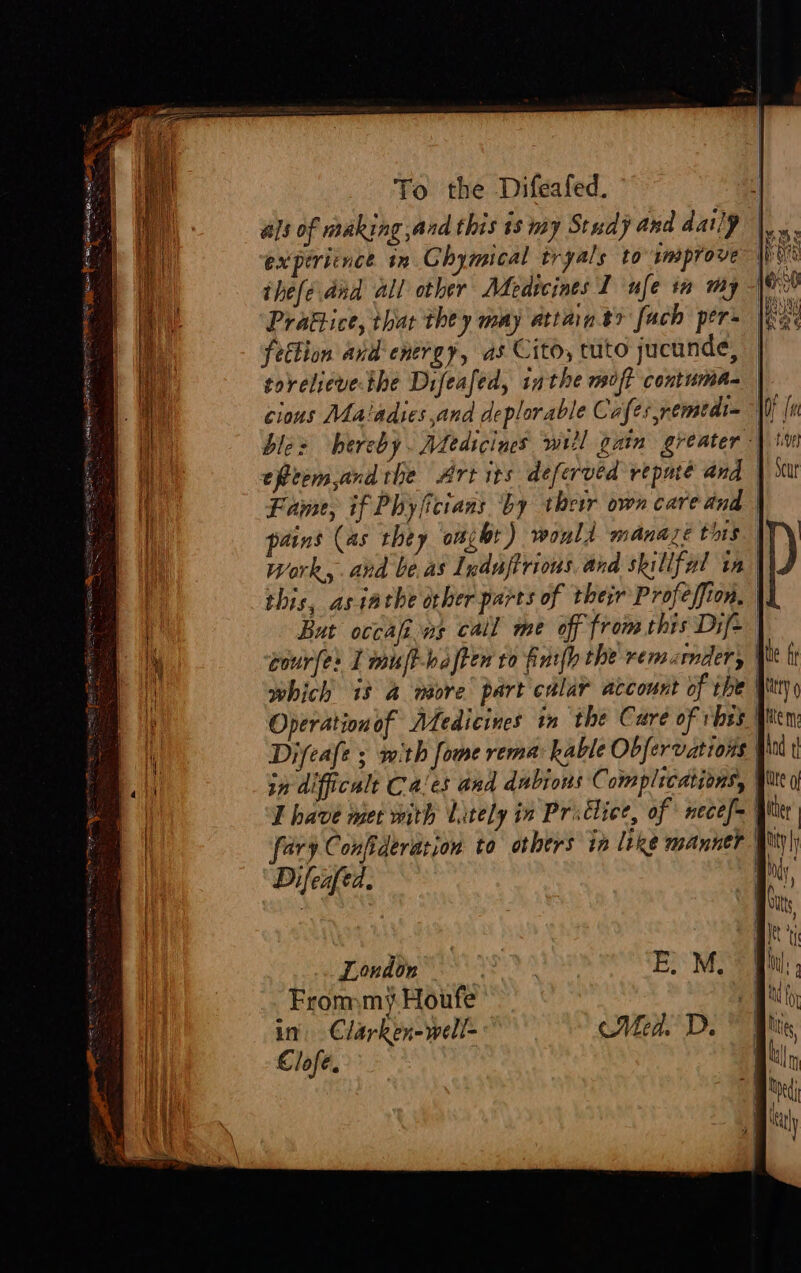 To the Diſeaſed.
als of making, and this is my Study and daily
experience in Chymical tryals to improve
theſe and all other Medicines I uſe in my
Practice, that they may attain to ſuch per-
fection and energy, as Cito, tuto jucunde,
to relieve the Diſeaſed, in the moſt contuma-
cious Maladies, and deplorable Caſes, remedi-
ble: hereby Medicines will gain greater
eſteem, and the Art its deſerved repute and
Fame, if Phyſicians by their own care and
pains (as they ought) would manage this
Work, and be as Induſtrious and skillful in
this, as in the other parts of their Profeſſion.
But occaſions call me off from this Diſ-
courſe: I muſt haſten to finiſh the remainder,
which is a more particular account of the
Operation of Medicines in the Cure of this
Diſeaſe; with ſome remarkable Obſervations
in difficult Caſes and dubious Complications,
I have met with lately in Practice, of neceſ-
ſary Conſideration to others in like manner
Diſeaſed.
London E. M.
From my Houſe
in Clarken-well- Med. D.
Cloſe.